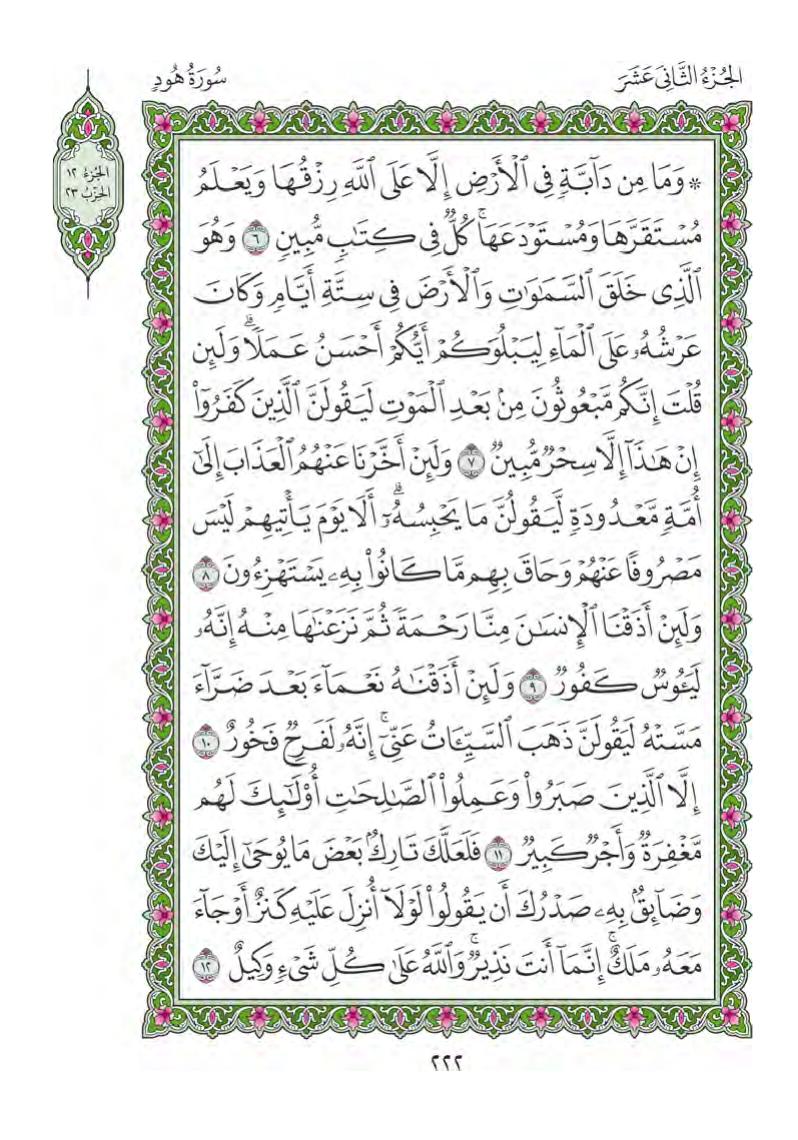 الجُزْءُ الثَّانِي عَشَرَ
سُورَةُ هُودٍ
الجزء ١٢
الحِزْبُ ٢٣
* وَمَا مِن دَآبَّةٖ فِي ٱلۡأَرۡضِ إِلَّا عَلَى ٱللَّهِ رِزۡقُهَا وَيَعۡلَمُ
مُسۡتَقَرَّهَا وَمُسۡتَوۡدَعَهَاۚ كُلّٞ فِي كِتَٰبٖ مُّبِينٖ ٦ وَهُوَ
ٱلَّذِي خَلَقَ ٱلسَّمَٰوَٰتِ وَٱلۡأَرۡضَ فِي سِتَّةِ أَيَّامٖ وَكَانَ
عَرۡشُهُۥ عَلَى ٱلۡمَآءِ لِيَبۡلُوَكُمۡ أَيُّكُمۡ أَحۡسَنُ عَمَلٗاۗ وَلَئِن
قُلۡتَ إِنَّكُم مَّبۡعُوثُونَ مِنۢ بَعۡدِ ٱلۡمَوۡتِ لَيَقُولَنَّ ٱلَّذِينَ كَفَرُوٓاْ
إِنۡ هَٰذَآ إِلَّا سِحۡرٞ مُّبِينٞ ٧ وَلَئِنۡ أَخَّرۡنَا عَنۡهُمُ ٱلۡعَذَابَ إِلَىٰٓ
أُمَّةٖ مَّعۡدُودَةٖ لَّيَقُولُنَّ مَا يَحۡبِسُهُۥٓۗ أَلَا يَوۡمَ يَأۡتِيهِمۡ لَيۡسَ
مَصۡرُوفًا عَنۡهُمۡ وَحَاقَ بِهِم مَّا كَانُواْ بِهِۦ يَسۡتَهۡزِءُونَ ٨
وَلَئِنۡ أَذَقۡنَا ٱلۡإِنسَٰنَ مِنَّا رَحۡمَةٗ ثُمَّ نَزَعۡنَٰهَا مِنۡهُ إِنَّهُۥ
لَيَـُٔوسٞ كَفُورٞ ٩ وَلَئِنۡ أَذَقۡنَٰهُ نَعۡمَآءَ بَعۡدَ ضَرَّآءَ
مَسَّتۡهُ لَيَقُولَنَّ ذَهَبَ ٱلسَّيِّـَٔاتُ عَنِّيٓۚ إِنَّهُۥ لَفَرِحٞ فَخُورٌ ١٠
إِلَّا ٱلَّذِينَ صَبَرُواْ وَعَمِلُواْ ٱلصَّٰلِحَٰتِ أُوْلَٰٓئِكَ لَهُم
مَّغۡفِرَةٞ وَأَجۡرٞ كَبِيرٞ ١١ فَلَعَلَّكَ تَارِكُۢ بَعۡضَ مَا يُوحَىٰٓ إِلَيۡكَ
وَضَآئِقُۢ بِهِۦ صَدۡرُكَ أَن يَقُولُواْ لَوۡلَآ أُنزِلَ عَلَيۡهِ كَنزٌ أَوۡ جَآءَ
مَعَهُۥ مَلَكٌۚ إِنَّمَآ أَنتَ نَذِيرٞۚ وَٱللَّهُ عَلَىٰ كُلِّ شَيۡءٖ وَكِيلٌ ١٢
٢٢٢